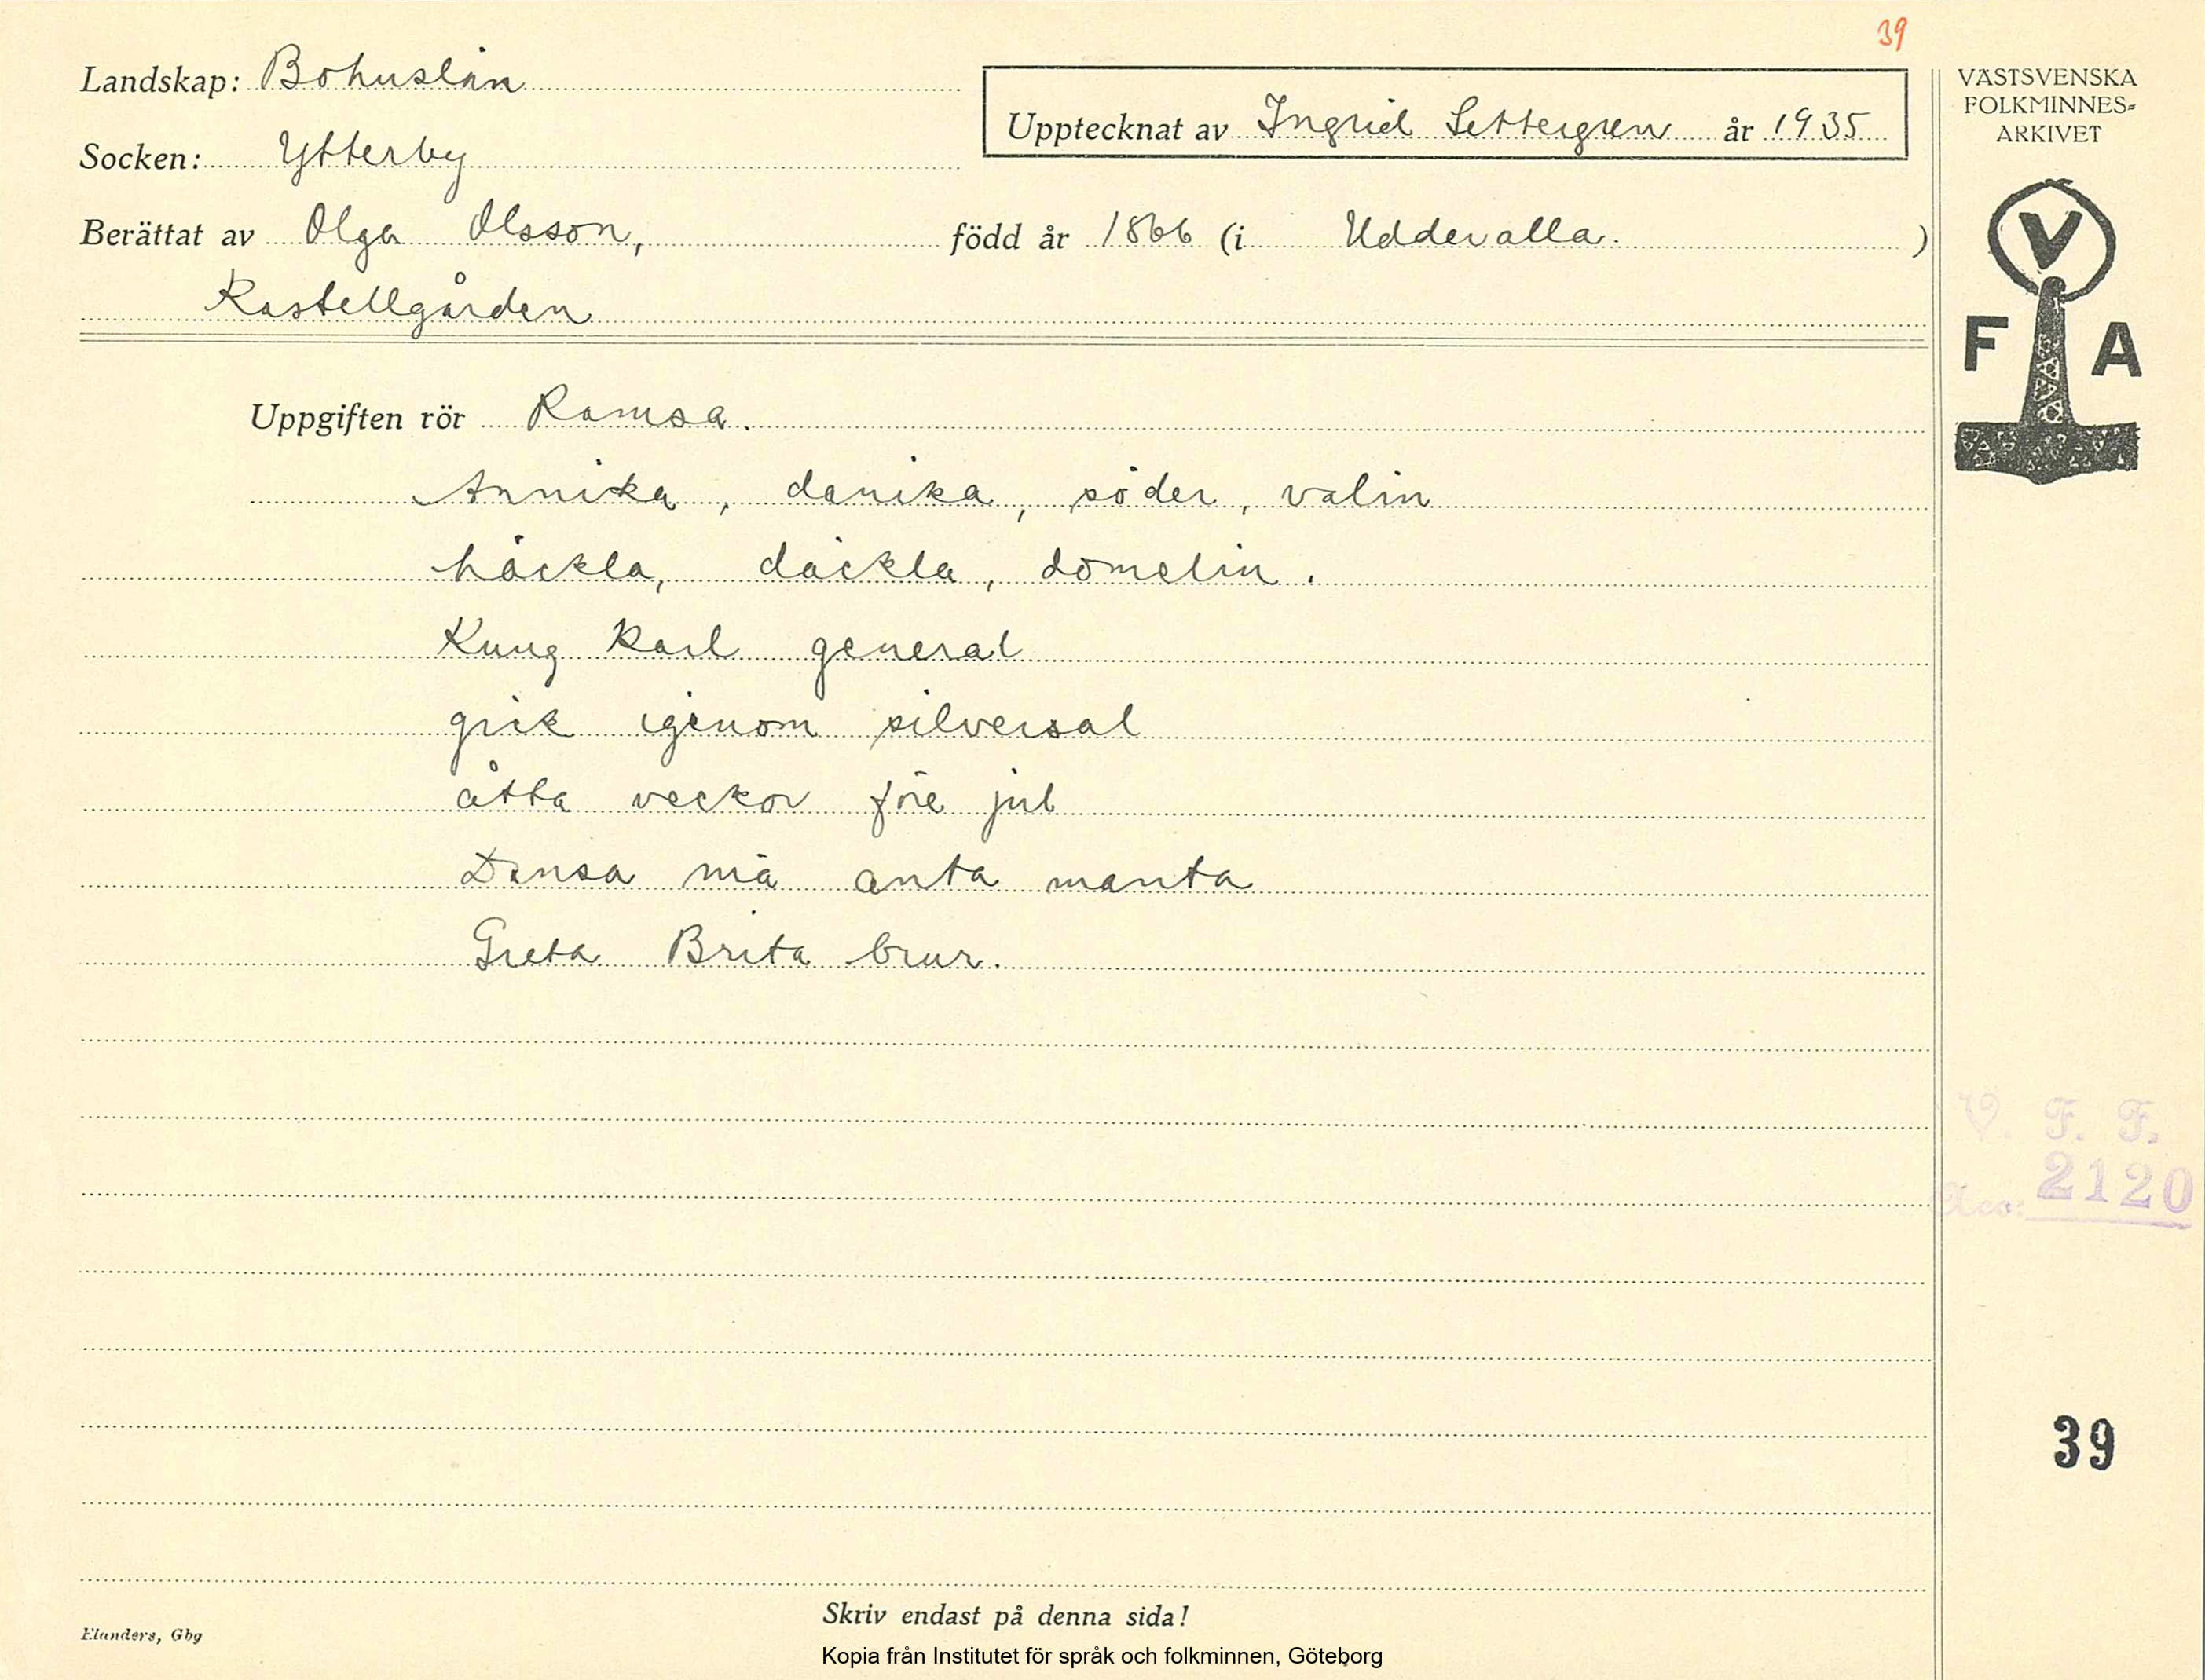 39
Landskap: Bohuslän
Upptecknat av Ingrid Settergren år 1935
VÄSTSVENSKA
FOLKMINNES-
ARKIVET
Socken: Ytterby
Berättat av Olga Olsson, född år 1866 (i Uddevalla. )
Kastellgården
V
F A
Uppgiften rör Ramsa.
Annika, danika, söder, valin
häckla, däckla, domelin.
Kung Karl general
gick igenom silversal
åtta veckor före jul
Dansa mä anta manta
Greta Brita brur.
V. F. F.
Acc: 2120
39
Skriv endast på denna sida!
Elanders, Gbg
Kopia från Institutet för språk och folkminnen, Göteborg